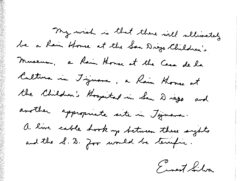 My wish is that there will ultimately
be a Rain House at the San Diego Children's
Museum, a Rain House at the Casa de la
Cultura in Tijuana, a Rain House at
the Children's Hospital in San Diego and
another appropriate site in Tijuana.
A live cable hook up between these sights
and the S.D. Zoo would be terrific.
Ernest Silva